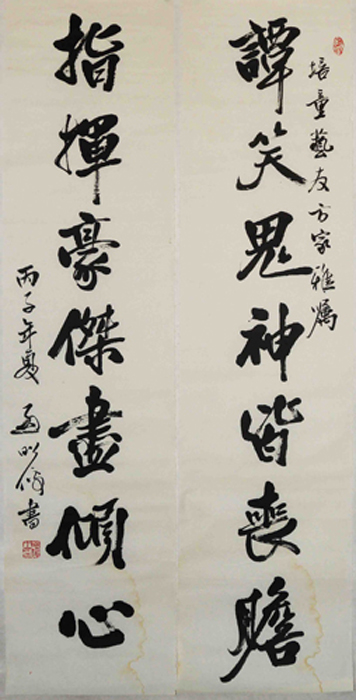 培童藝友方家雅屬
譚笑鬼神皆喪膽
指揮豪傑盡傾心
丙子年夏 書